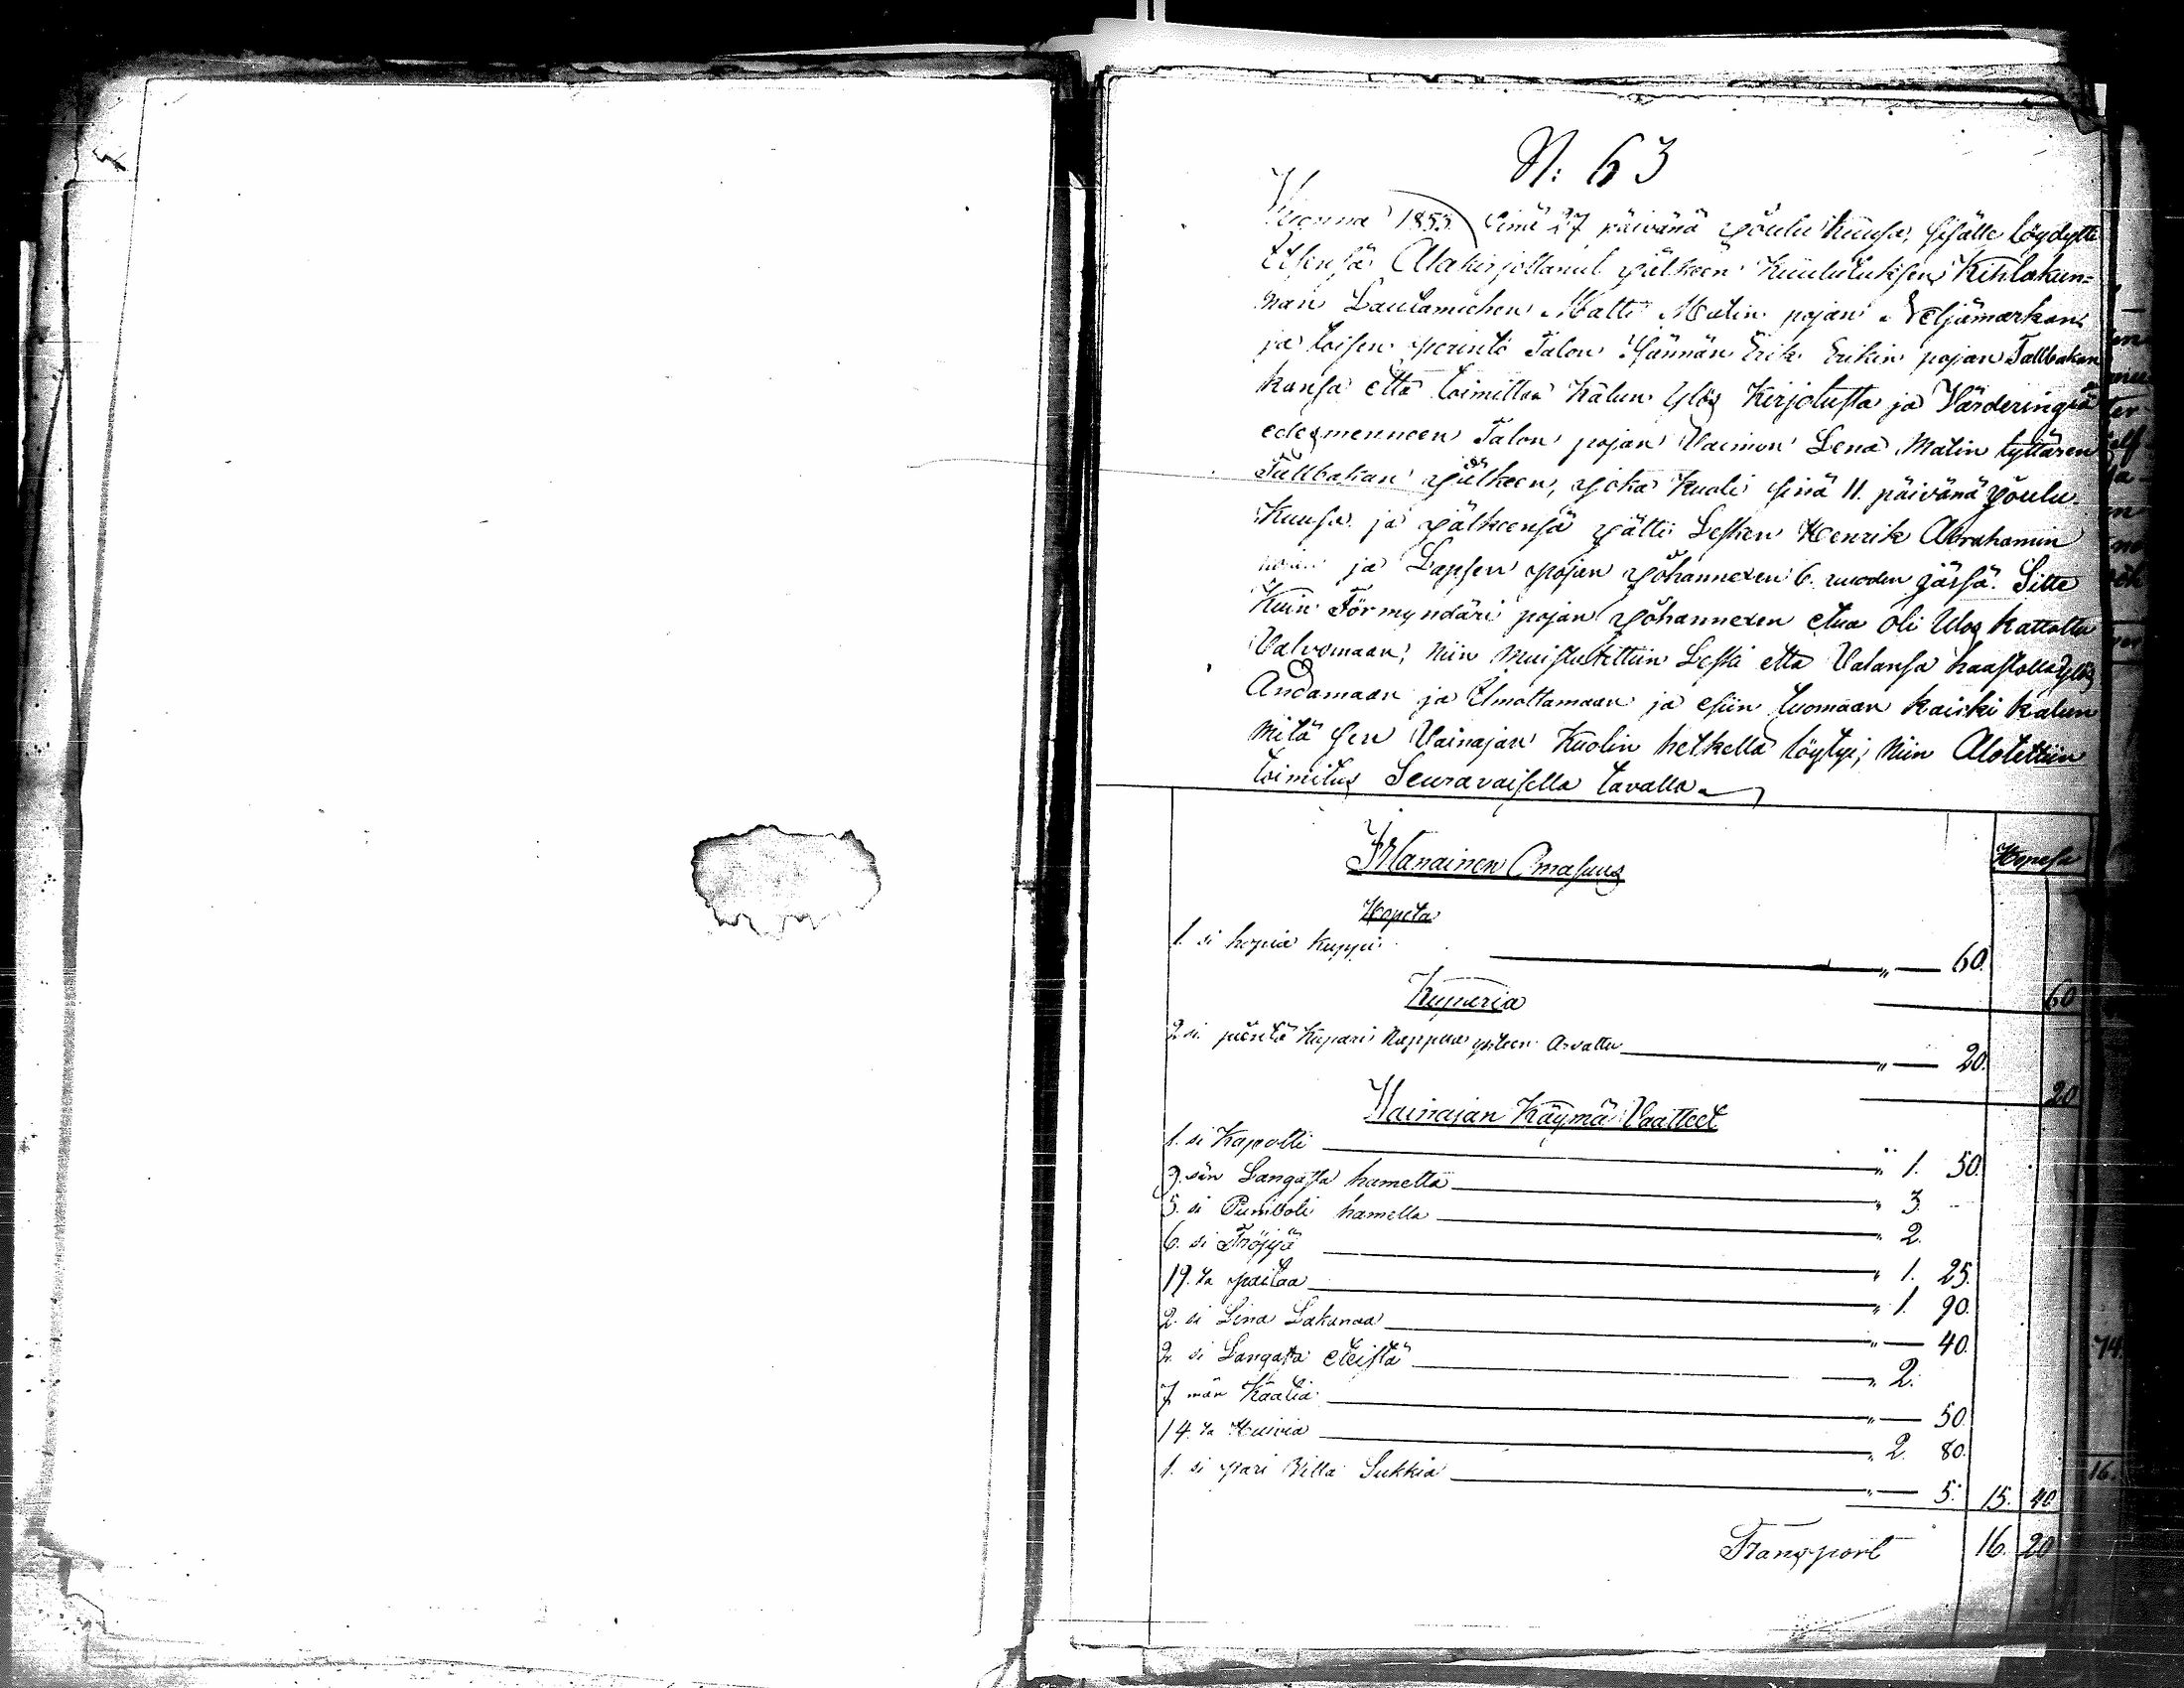 N: 63
Vuonna 1853. Sinä 27 päivänä Joulu Kuusa, sisälle löydytti
Itsensä Alakirjottanut Jälkeen Kuulutuksen Kihlakun=
nan Lautamiehen Matti Matin pojan Neljämarkan
ja toisen perintö Talon Isännän Erik Erikin pojan Tallbakan
kansa että toimittaa Kalun Ylös Kirjotusta ja Värderingiä
edesmenneen Talon pojan Vaimon Lena Matin tyttären
Tallbakan Jälkeen, Joka Kuoli sinä 11. päivänä Joulu
Kuusa ja Jälkeensä Jätti Lesken Henrik Abrahamin
ja Lapsen pojan Johannexen 6. vuoden Jässä. Sitte
Kuin Förmyndäri pojan Johannexen etua oli Ulos kattottu
Valvomaan; niin muistutettiin Leski että Valansa haastolla Ylös
Andamaan ja Ilmottamaan ja esiin tuomaan kaicki kalun
mitä sen Vainajan Kuolin hetkellä löystyi; niin Alotettiin
toimitus Seuravaisella tavalla
Irtanainen Omasuus
Hopesa
Hopeta
1. si hopia kuppi " — 60.
60
Kuparia
2. si. pientä Kupari Kuppua yhteen Arvattu " — 20.
20
Vainajan Käymä Vaatteet
1. si Kapotti " 1. 50.
9. sän Langasta hametta " 3. -
5. si Pumboli hametta " 2.
6. si Tröijyä " 1. 25.
19. ta paitaa " 1. 90.
2. si Lina Lakanaa " — 40.
2. si Langasta eteistä " 2.
7 män Kaalia " — 50.
14. ta Huivia " 2. 80.
1. si pari Villa Sukkia " — 5. 15. 40
Transport 16. 20